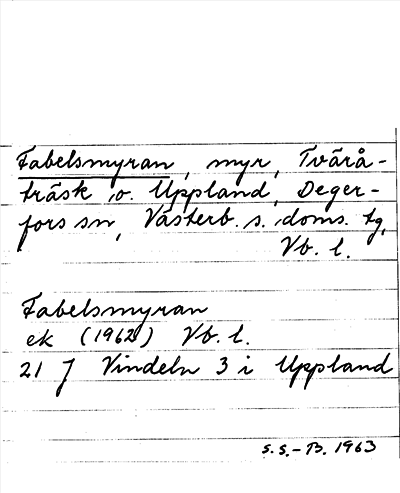 Fabelsmyran, myr, Tvärå-
träsk o. Uppland, Deger-
fors sn, Västerb. s. doms. tg,
Vb. l.
Fabelsmyran
ek (1962) Vb. l.
21 J Vindeln 3 i Uppland
S.S.-B. 1963